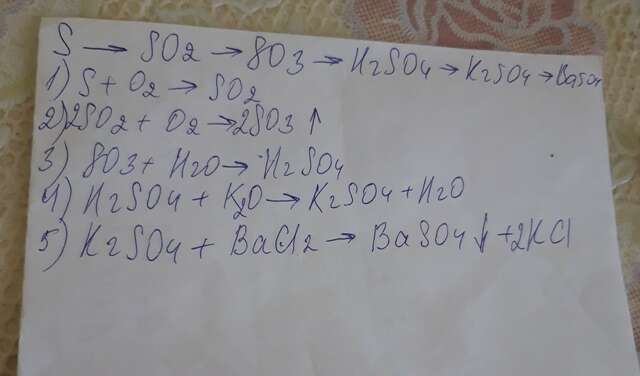 S → SO2 → SO3 → H2SO4 → K2SO4 → BaSO4
1) S + O2 → SO2
2) 2SO2 + O2 → 2SO3 ↑
3) SO3 + H2O → H2SO4
4) H2SO4 + K2O → K2SO4 + H2O
5) K2SO4 + BaCl2 → BaSO4 ↓ + 2KCl